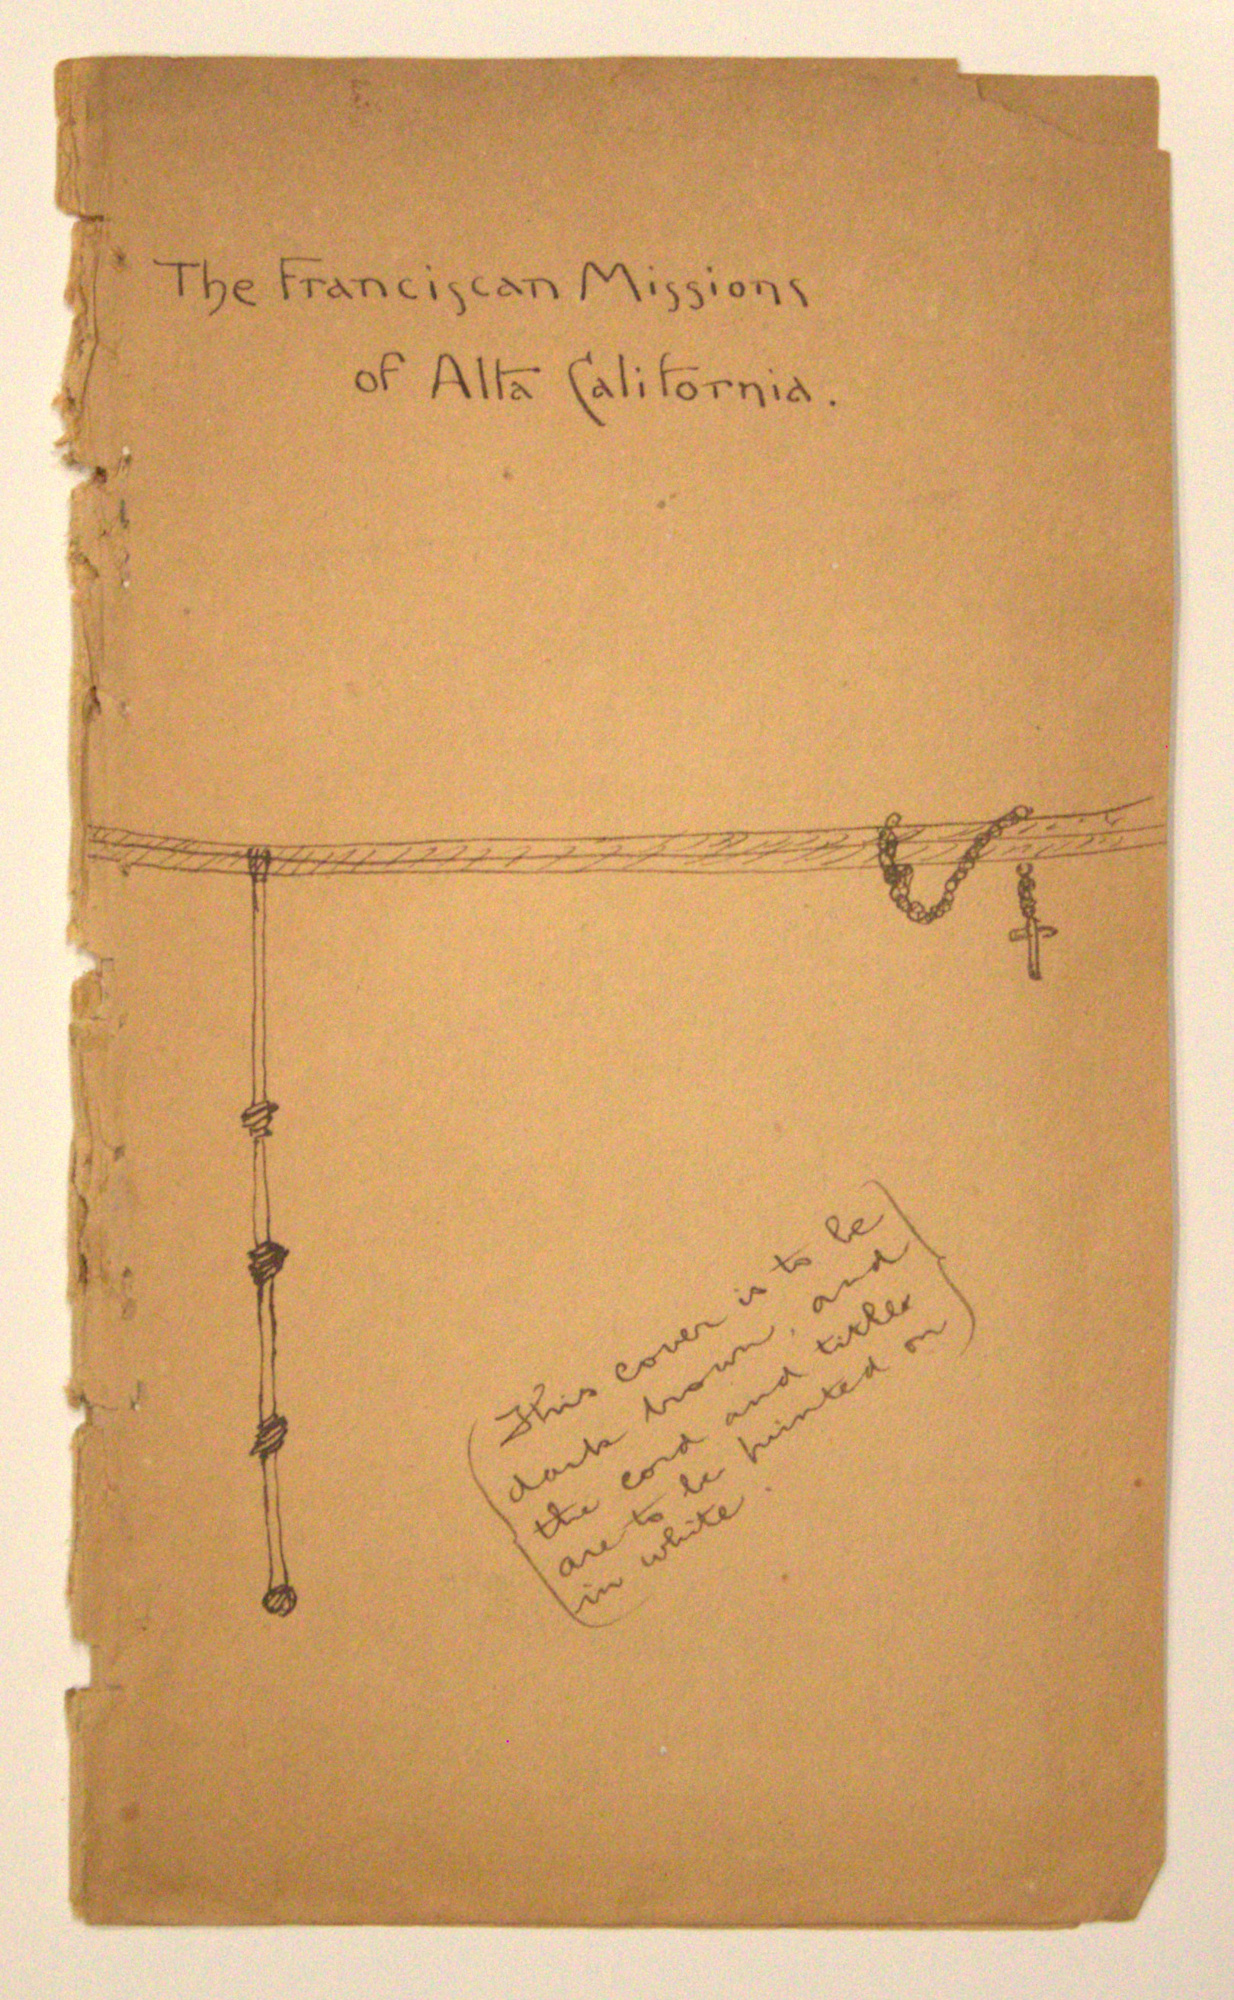 The Franciscan Missions
of Alta California.
This cover is to be
dark brown, and
the cord and titles
are to be printed on
in white.